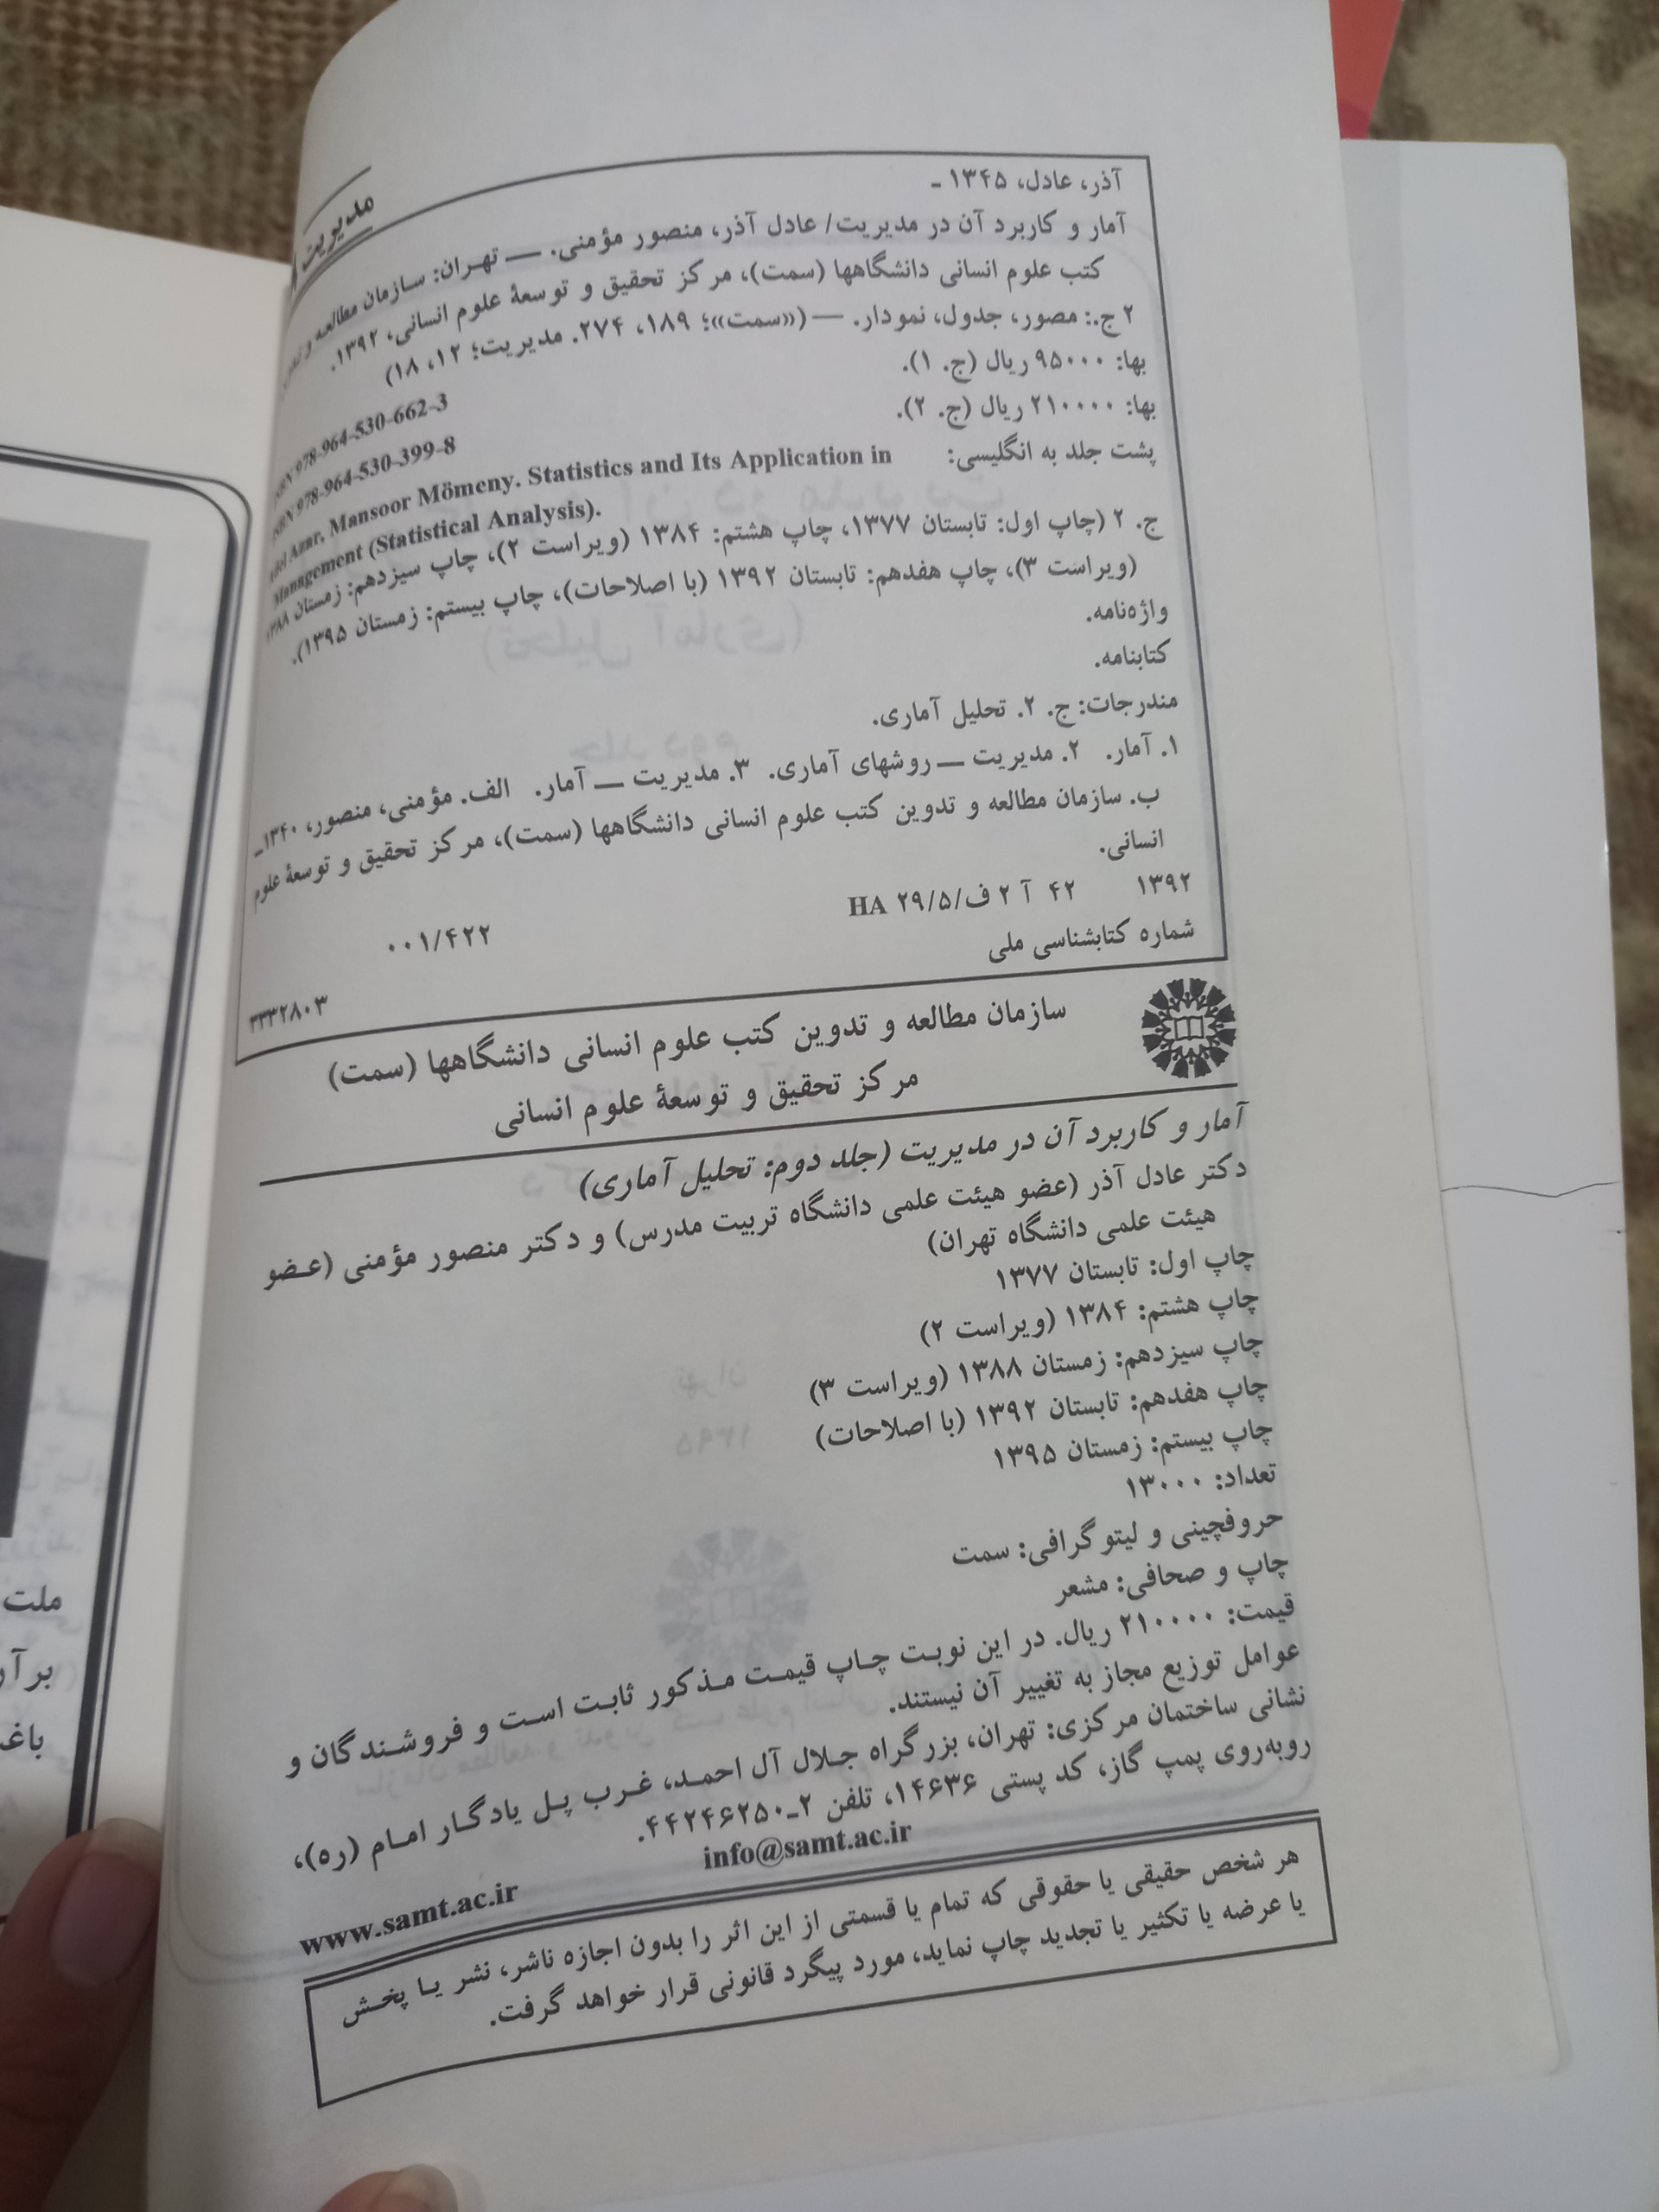 مدیریت
آذر، عادل، ۱۳۴۵ ـ
آمار و کاربرد آن در مدیریت/ عادل آذر، منصور مؤمنی. — تهران: سازمان مطالعه و
کتب علوم انسانی دانشگاهها (سمت)، مرکز تحقیق و توسعۀ علوم انسانی، ۱۳۹۲.
۲ ج.: مصور، جدول، نمودار. — («سمت»؛ ۱۸۹، ۲۷۴. مدیریت؛ ۱۲، ۱۸)
بها: ۹۵۰۰۰ ریال (ج. ۱).
ISBN 978-964-530-662-3
بها: ۲۱۰۰۰۰ ریال (ج. ۲).
ISBN 978-964-530-399-8
پشت جلد به انگلیسی:
Azar, Mansoor Mömeny. Statistics and Its Application in
Management (Statistical Analysis).
ج. ۲ (چاپ اول: تابستان ۱۳۷۷، چاپ هشتم: ۱۳۸۴ (ویراست ۲)، چاپ سیزدهم: زمستان ۱۳۸۸
(ویراست ۳)، چاپ هفدهم: تابستان ۱۳۹۲ (با اصلاحات)، چاپ بیستم: زمستان ۱۳۹۵).
واژه‌نامه.
کتابنامه.
مندرجات: ج. ۲. تحلیل آماری.
۱. آمار. ۲. مدیریت — روشهای آماری. ۳. مدیریت — آمار. الف. مؤمنی، منصور، ۱۳۴۰ـ
ب. سازمان مطالعه و تدوین کتب علوم انسانی دانشگاهها (سمت)، مرکز تحقیق و توسعۀ علوم
انسانی.
۱۳۹۲ ۴۲ آ ۲ ف/۲۹/۵ HA
۰۰۱/۴۲۲
شماره کتابشناسی ملی
۳۳۳۲۸۰۳
سازمان مطالعه و تدوین کتب علوم انسانی دانشگاهها (سمت)
مرکز تحقیق و توسعۀ علوم انسانی
آمار و کاربرد آن در مدیریت (جلد دوم: تحلیل آماری)
دکتر عادل آذر (عضو هیئت علمی دانشگاه تربیت مدرس) و دکتر منصور مؤمنی (عضو
هیئت علمی دانشگاه تهران)
چاپ اول: تابستان ۱۳۷۷
چاپ هشتم: ۱۳۸۴ (ویراست ۲)
چاپ سیزدهم: زمستان ۱۳۸۸ (ویراست ۳)
چاپ هفدهم: تابستان ۱۳۹۲ (با اصلاحات)
چاپ بیستم: زمستان ۱۳۹۵
تعداد: ۱۳۰۰۰
حروفچینی و لیتوگرافی: سمت
چاپ و صحافی: مشعر
قیمت: ۲۱۰۰۰۰ ریال. در این نوبت چاپ قیمت مذکور ثابت است و فروشندگان و
عوامل توزیع مجاز به تغییر آن نیستند.
نشانی ساختمان مرکزی: تهران، بزرگراه جلال آل احمد، غرب پل یادگار امام (ره)،
روبه‌روی پمپ گاز، کد پستی ۱۴۶۳۶، تلفن ۲ـ۴۴۲۴۶۲۵۰.
info@samt.ac.ir
www.samt.ac.ir
هر شخص حقیقی یا حقوقی که تمام یا قسمتی از این اثر را بدون اجازه ناشر، نشر یا پخش
یا عرضه یا تکثیر یا تجدید چاپ نماید، مورد پیگرد قانونی قرار خواهد گرفت.
ملت